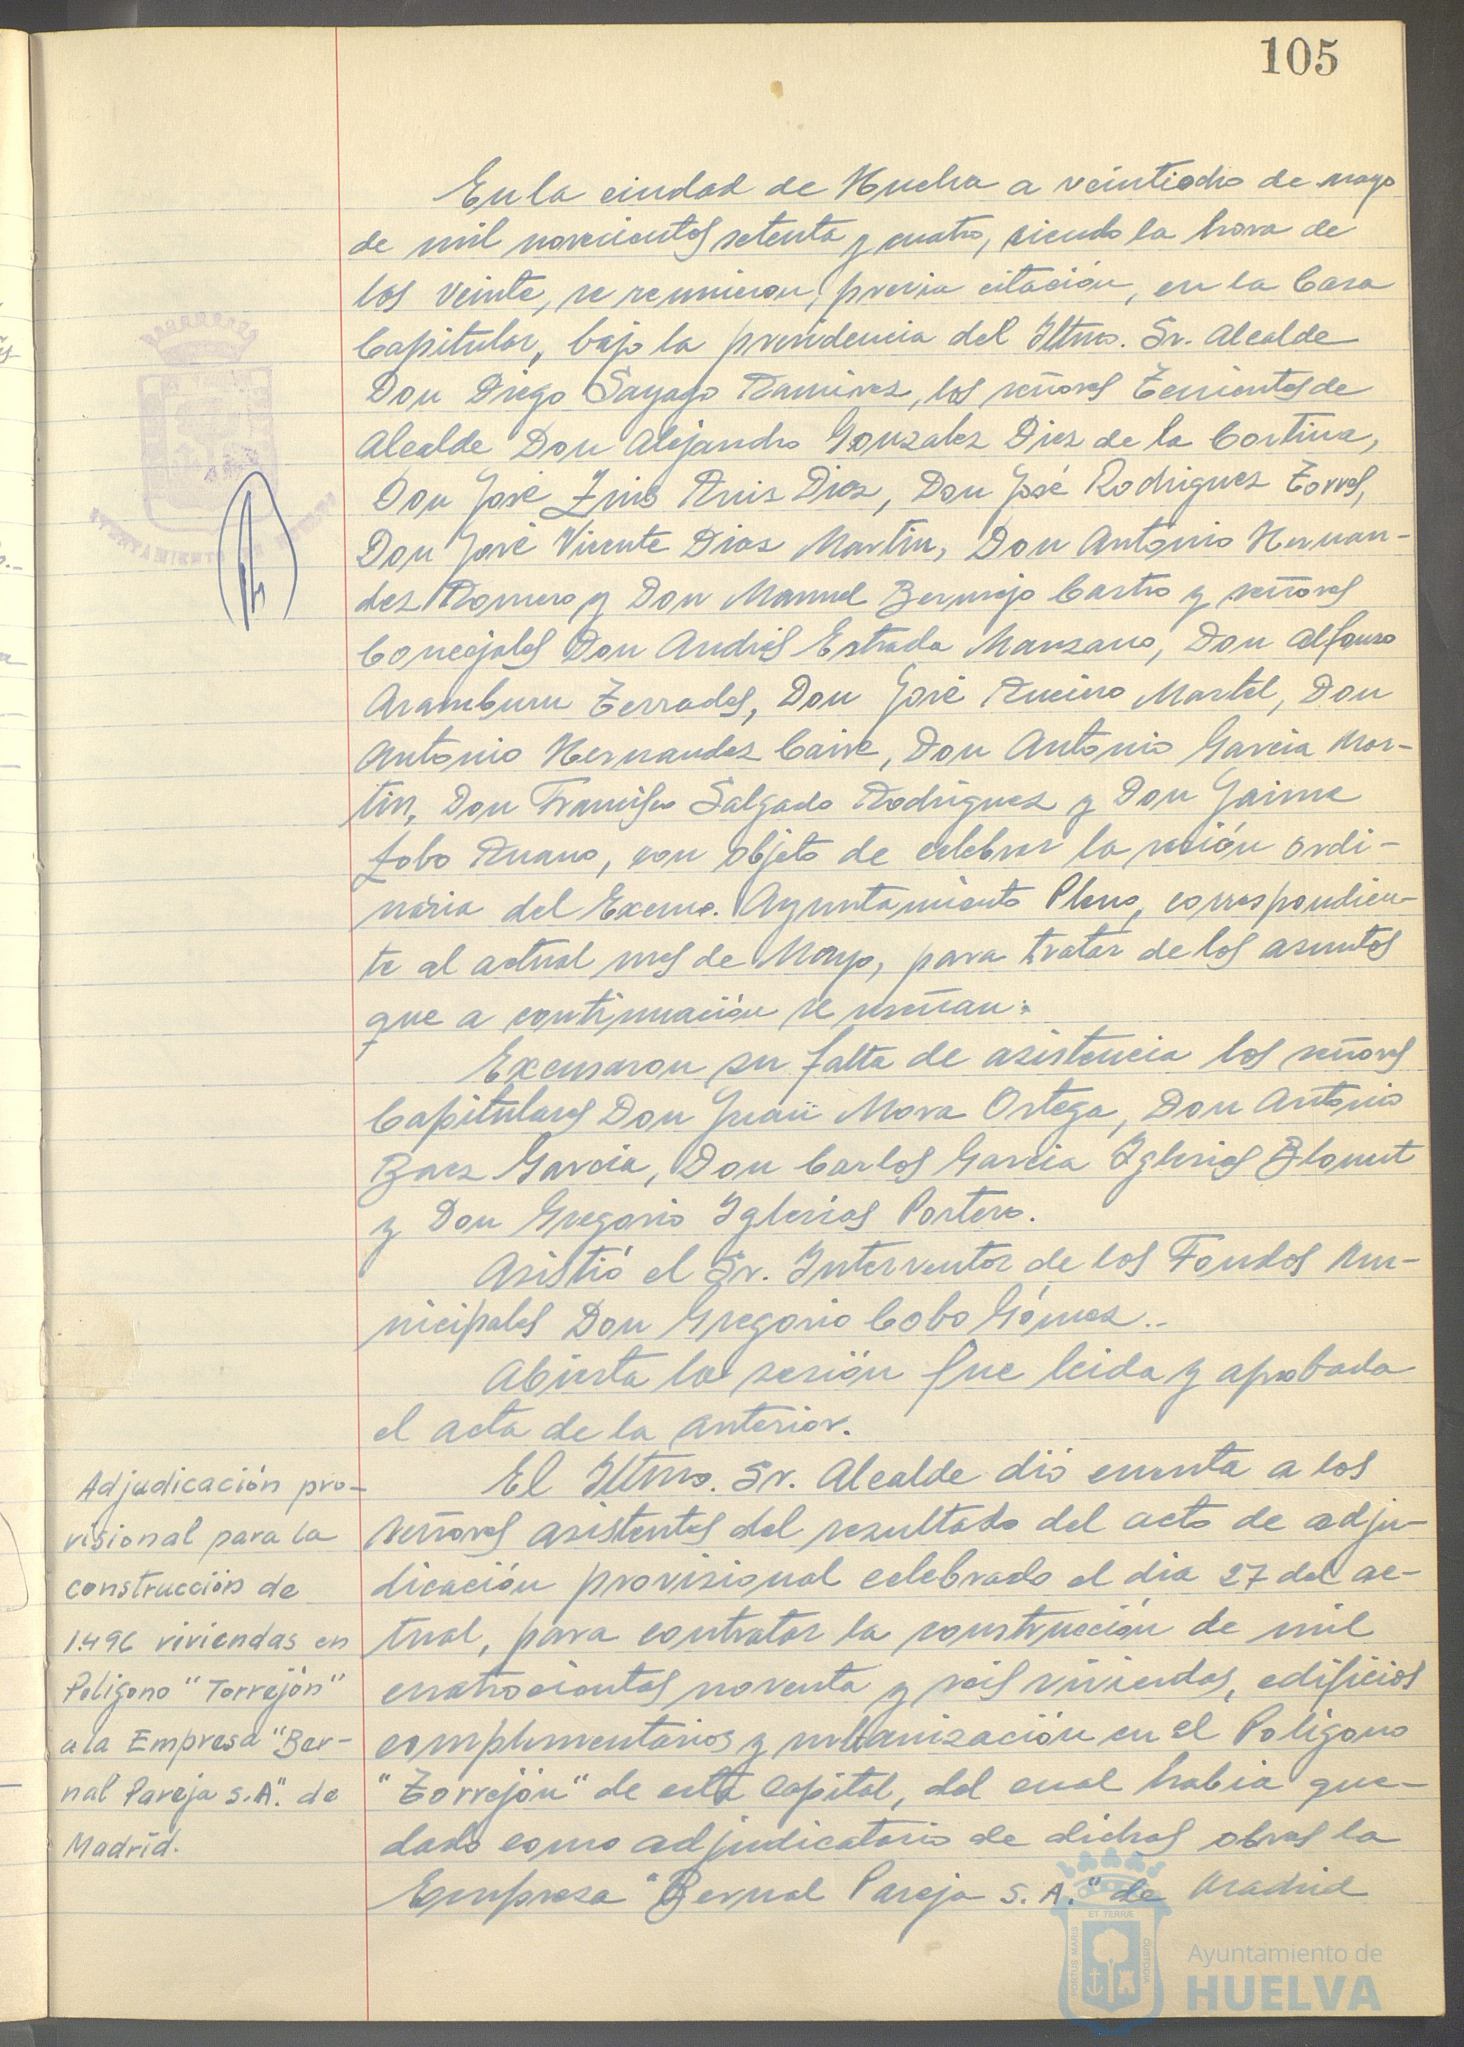 105
En la ciudad de Huelva a veintiocho de mayo
de mil novecientos setenta y cuatro, siendo la hora de
las veinte, se reunieron, previa citación, en la Casa
Capitular, bajo la presidencia del Iltmo. Sr. Alcalde
Don Diego Sayago Ramirez, los señores Tenientes de
Alcalde Don Alejandro Gonzalez Diez de la Cortina,
Don José Luis Ruiz Diaz, Don José Rodriguez Torres,
Don José Vicente Diaz Martin, Don Antonio Hernan-
dez Romero y Don Manuel Bermejo Castro y señores
Concejales Don Andres Estrada Manzano, Don Alfonso
Aramburu Terrades, Don José Rucino Martel, Don
Antonio Hernandez Caire, Don Antonio Garcia Mar-
tin, Don Francisco Salgado Rodriguez y Don Jaime
Lobo Ruano, con objeto de celebrar la sesión ordi-
naria del Excmo. Ayuntamiento Pleno, correspondien-
te al actual mes de Mayo, para tratar de los asuntos
que a continuación se reseñan:
Excusaron su falta de asistencia los señores
Capitulares Don Juan Mora Ortega, Don Antonio
Baez Garcia, Don Carlos Garcia Iglesias
y Don Gregorio Iglesias Portero.
Asistió el Sr. Interventor de los Fondos Mu-
nicipales Don Gregorio Cobo Gómez..
Abierta la sesión fue leida y aprobada
el acta de la anterior.
Adjudicación pro-
visional para la
construcción de
1.496 viviendas en
Poligono "Torrejón"
a la Empresa "Ber-
nal Pareja S.A". de
Madrid.
El Iltmo. Sr. Alcalde dió cuenta a los
señores asistentes del resultado del acto de adju-
dicación provisional celebrado el dia 27 del ac-
tual, para contratar la construcción de mil
cuatrocientas noventa y seis viviendas, edificios
complementarios y urbanización en el Poligono
"Torrejón" de esta Capital, del cual habia que-
dado como adjudicatario de dichas obras la
Empresa "Bernal Pareja S.A." de Madrid
AYUNTAMIENTO DE HUELVA
PORTUS MARIS
ET TERRÆ
CUSTODIA
Ayuntamiento de
HUELVA